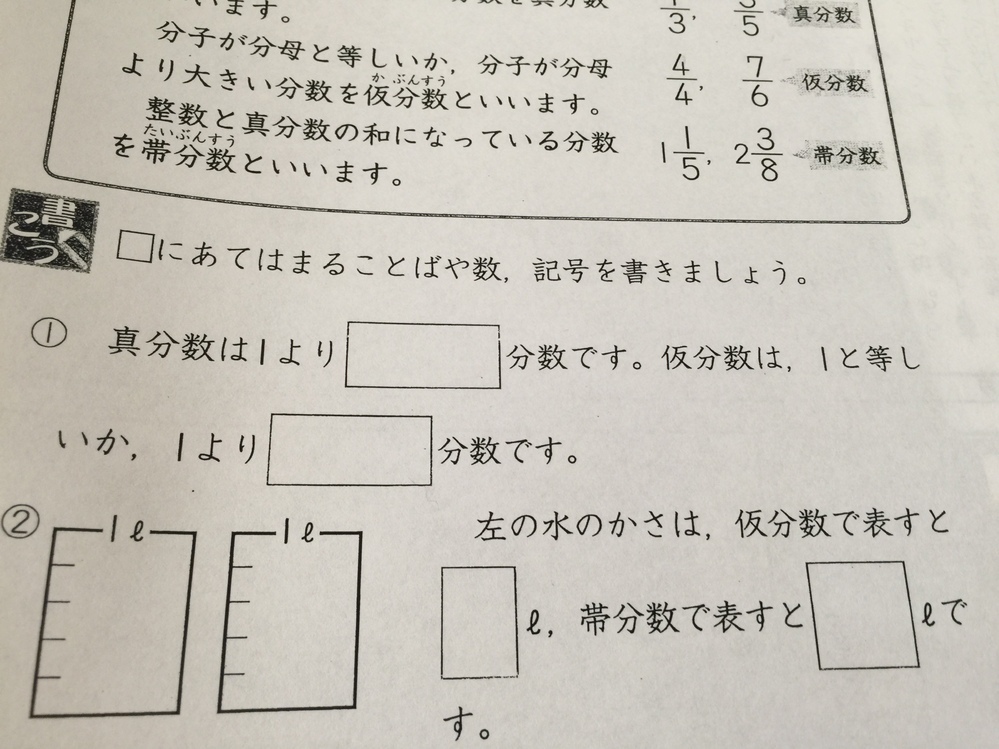 います。
分子が分母と等しいか，分子が分母
より大きい分数を仮分数といいます。
かぶんすう
整数と真分数の和になっている分数
を帯分数といいます。
たいぶんすう
3/5 真分数
4/4， 7/6 仮分数
1 1/5， 2 3/8 帯分数
書こう
□にあてはまることばや数，記号を書きましょう。
① 真分数は1より 分数です。仮分数は，1と等し
いか，1より 分数です。
② 1ℓ 1ℓ 左の水のかさは，仮分数で表すと
ℓ，帯分数で表すと ℓで
す。